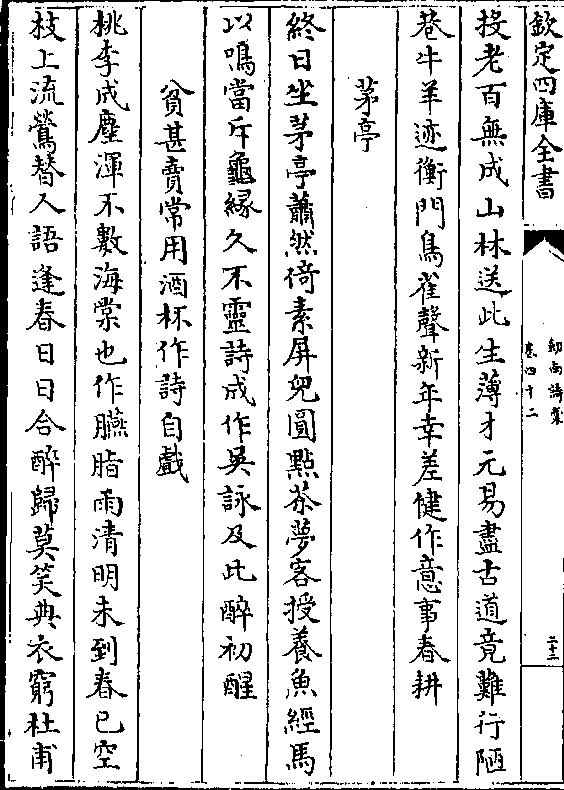 欽定四庫全書
劍南詩槀
卷四十二
二十三
投老百無成山林送此生薄才元易盡古道竟難行陋
巷牛羊迹衡門鳥雀聲新年幸差健作意事春耕
茅亭
終日坐茅亭蕭然倚素屏兒圓㸃茶夢客授養魚經馬
以鳴當斥龜縁久不靈詩成作吳詠及此醉初醒
貧甚賣常用酒杯作詩自戲
桃李成塵渾不數海棠也作臙脂雨清明未到春已空
枝上流鶯替人語逢春日日合醉歸莫笑典衣窮杜甫